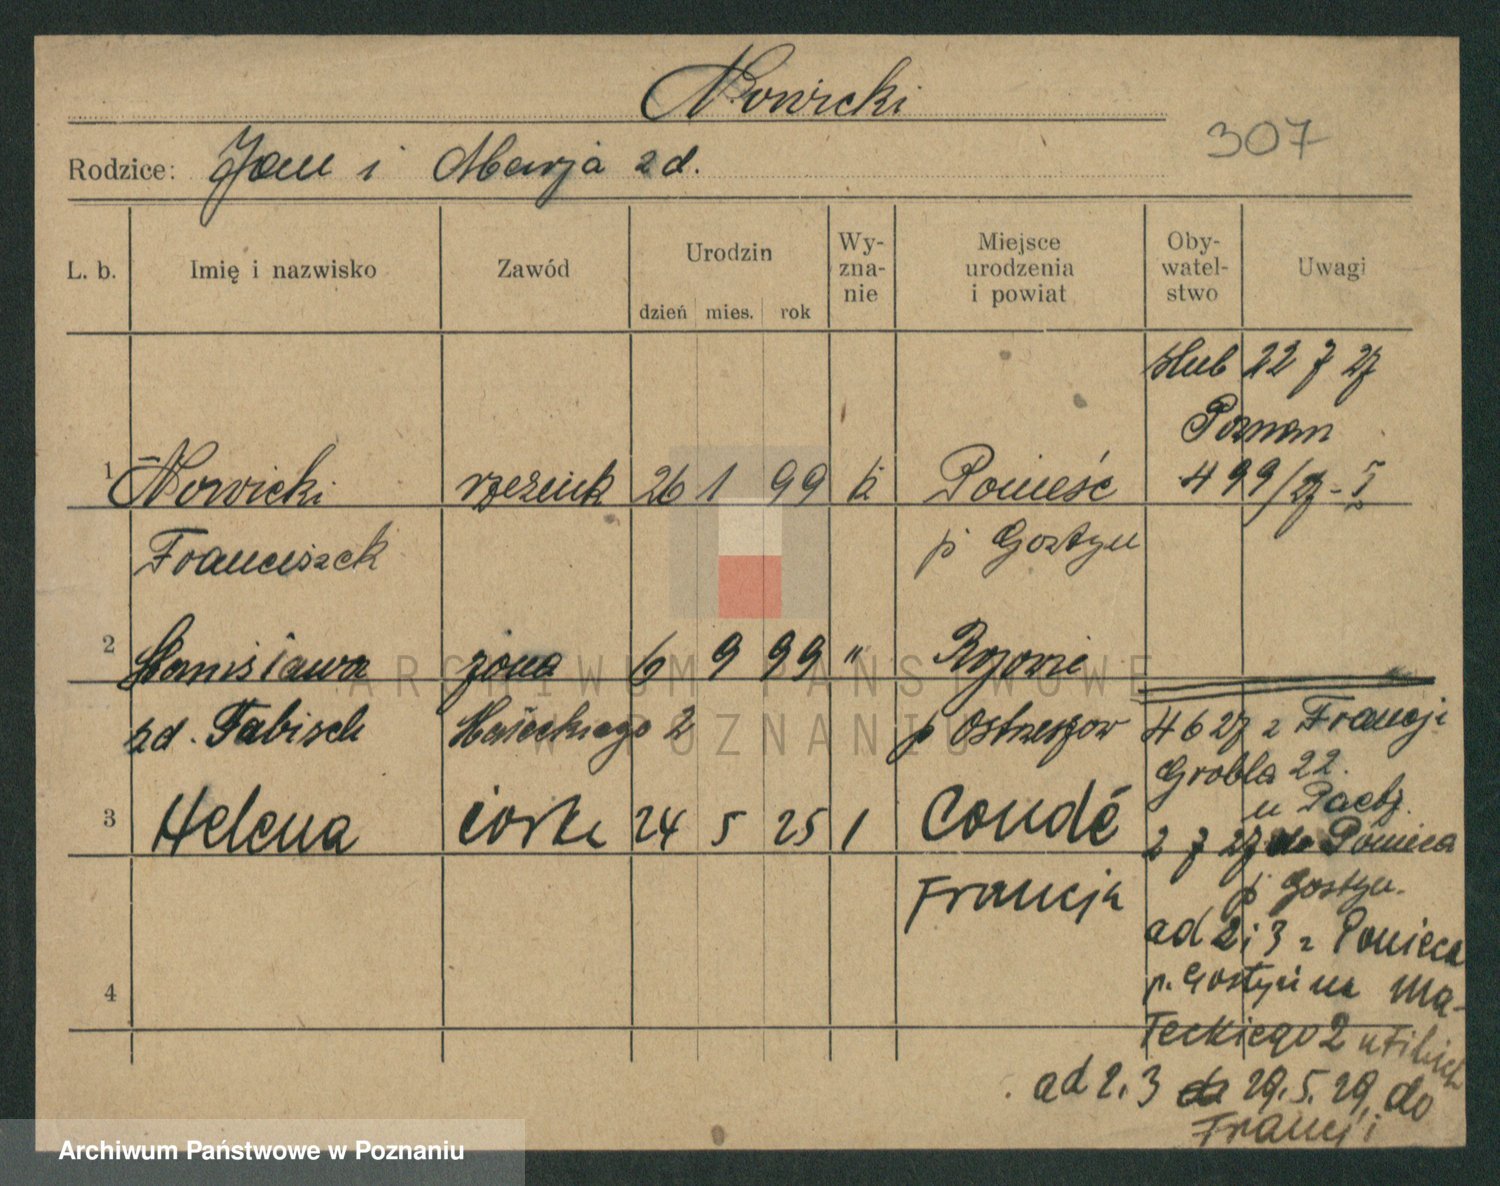 Nowicki
307
Rodzice: Jan i Marja zd.
L. b. Imię i nazwisko Zawód Urodzin dzień mies. rok Wy-zna-nie Miejsce urodzenia i powiat Oby-watel-stwo Uwagi
ślub 22 7 27
Poznań
499/27-I
1 Nowicki rzeźnik 26 1 99 k Poniec
Franciszek p Gostyń
2 Stanisława żona 6 9 99 " 
zd. Fabisch Małeckiego 2 p Ostrzeszow
4 6 27 z Francji
Grobla 22.
3 Helena córka 24 5 25 Condé
u
2 7 27 doEdnotesca Ponieca
Francja p Gostyń.
ad 2 i 3 z Ponieca
p. Gostyń na Ma-
łeckiego 2 u
4
ad 2. 3 29. 5. 29. do
Francji
ARCHIWUM PAŃSTWOWE
W POZNANIU
Archiwum Państwowe w Poznaniu